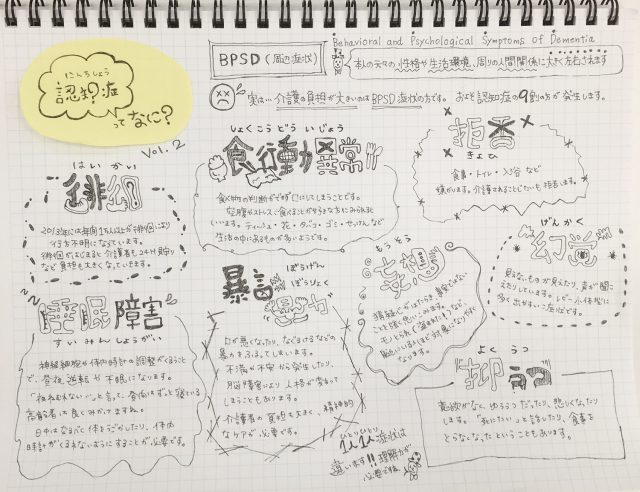 にんちしょう
認知症
ってなに?
Vol.2
BPSD(周辺症状)
Behavioral and Psychological Symptoms of Dementia
本人の元々の性格や生活環境、周りの人間関係に大きく左右されます
実は…介護の負担が大きいのはBPSD症状の方です。 およそ認知症の9割の方が発生します。
はいかい
徘徊
2013年には年間1万人以上が徘徊により
行方不明になっています。
徘徊がはじまると介護者も24H見守り
など負担も大きくなっていきます。
しょくこうどういじょう
食行動異常
食べ物の判断ができず口にしてしまうことです。
空腹やストレス、食べることが好きな方にみられると
いいます。ティッシュ・花・タバコ・ゴミ・せっけんなど
生活の中にあるものが多いようです。
拒否
きょひ
食事・トイレ・入浴 など
嫌がります。介護されることじたいを拒否します。
げんかく
幻覚
見えないものが見えたり、声が聞こ
えたりしています。レビー小体型に
多く出やすい症状です。
睡眠障害
すいみんしょうがい
神経細胞や体内時計の調整がくるうこと
で、昼夜逆転や不眠になります。
「ねむれない…」と言って、昼間はずっと寝ている
高齢者は良くみかけますね。
日中はなるべく体をうごかしたり、体内
時計がくるわないようにすることが必要です。
ぼうげん
ぼうりょく
暴言
暴力
口が悪くなったり、なぐるけるなどの
暴力をふるってしまいます。
不満や不安から発生したり、
脳障害により人格が変わって
しまうこともあります。
介護者の負担も大きく、精神的
なケアが必要です。
もうそう
妄想
猜疑心がはたらき、事実ではない
ことを強く思いこみます。
モノとられ(盗まれた)など、
親しい人ほど対象になりやすく
なります。
よくうつ
抑うつ
意欲がなく、ゆううつだったり、悲しくなったり
します。「死にたい」と話したり、食事を
とらなくなったということもあります。
ひとりひとり
1人1人症状は
違います!!理解力が
必要です。